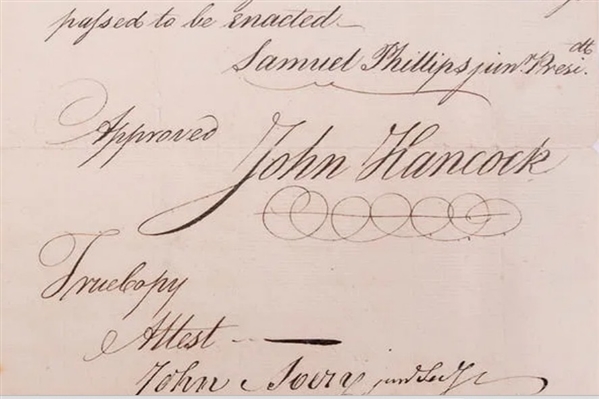 passed to be enacted
Samuel Phillips jun.r Presi.dt
Approved
John Hancock
True Copy
Attest
John Avery jun.r Sec.y